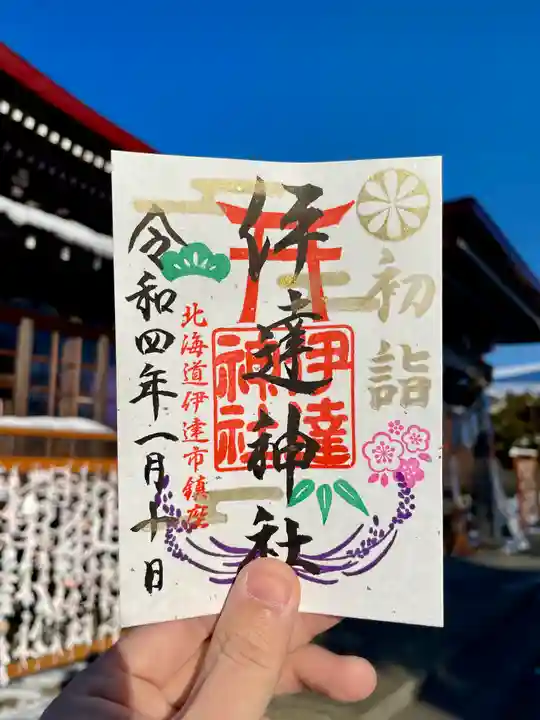 初詣
伊達神社
伊達
神社
北海道伊達市鎮座
令和四年一月十日